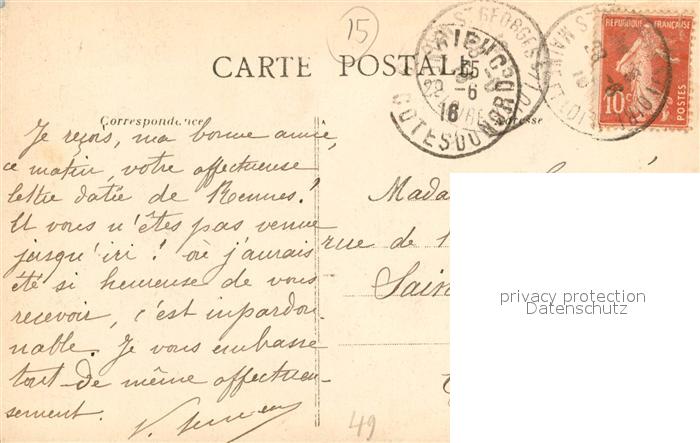 15
CARTE POSTALE
Correspondance
Adresse
RÉPUBLIQUE FRANÇAISE
10c
15
-6
16
COTES DU NORD
Je reçois, ma bonne amie,
ce matin, votre affectueuse
lettre datée de Rennes!
Et vous n'êtes pas venue
jusqu'ici! où j'aurais
été si heureuse de vous
recevoir, c'est inpardon-
nable. Je vous embrasse
tout de même affectueu-
sement.
Mada
rue de l
Sain
privacy protection
Datenschutz
49